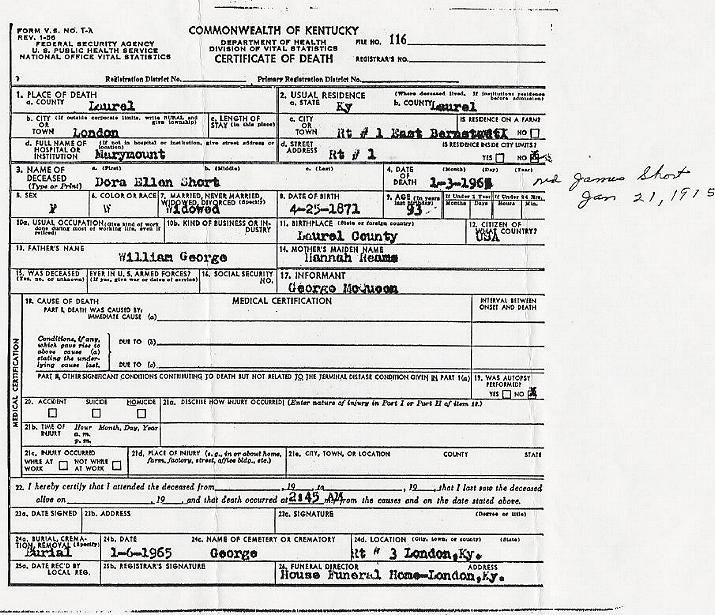 FORM V.S. NO. 1-A
REV. 1-56
FEDERAL SECURITY AGENCY
U. S. PUBLIC HEALTH SERVICE
NATIONAL OFFICE VITAL STATISTICS
COMMONWEALTH OF KENTUCKY
DEPARTMENT OF HEALTH
DIVISION OF VITAL STATISTICS
CERTIFICATE OF DEATH
FILE NO. 116
REGISTRAR'S NO.
Registration District No. Primary Registration District No.
1. PLACE OF DEATH
a. COUNTY Laurel
2. USUAL RESIDENCE (Where deceased lived. If institution: residence before admission)
a. STATE Ky b. COUNTY Laurel
b. CITY OR TOWN (If outside corporate limits, write RURAL and give township) London
c. LENGTH OF STAY (in this place)
c. CITY OR TOWN Rt # 1 East Bernstadt
IS RESIDENCE ON A FARM? NO
d. FULL NAME OF HOSPITAL OR INSTITUTION (If not in hospital or institution, give street address or location) Marymount
d. STREET ADDRESS Rt # 1
IS RESIDENCE INSIDE CITY LIMITS? YES NO
3. NAME OF DECEASED (Type or Print) a. (First) b. (Middle) c. (Last)
Dora Ellen Short
4. DATE OF DEATH (Month) (Day) (Year)
1-3-196
James Short
Jan 21, 1915
5. SEX F
6. COLOR OR RACE W
7. MARRIED, NEVER MARRIED, WIDOWED, DIVORCED (Specify) Widowed
8. DATE OF BIRTH 4-25-1871
9. AGE (In years last birthday) 93
If Under 1 Year Months Days
If Under 24 Hrs. Hours Min.
10a. USUAL OCCUPATION (Give kind of work done during most of working life, even if retired)
10b. KIND OF BUSINESS OR INDUSTRY
11. BIRTHPLACE (State or foreign country) Laurel County
12. CITIZEN OF WHAT COUNTRY? USA
13. FATHER'S NAME William George
14. MOTHER'S MAIDEN NAME Hannah Reams
15. WAS DECEASED EVER IN U. S. ARMED FORCES? (Yes, no, or unknown) (If yes, give war or dates of service)
16. SOCIAL SECURITY NO.
17. INFORMANT George McQueen
MEDICAL CERTIFICATION
18. CAUSE OF DEATH
MEDICAL CERTIFICATION
INTERVAL BETWEEN ONSET AND DEATH
PART I. DEATH WAS CAUSED BY:
IMMEDIATE CAUSE (a)
Conditions, if any, which gave rise to above cause (a) stating the underlying cause last.
DUE TO (b)
DUE TO (c)
PART II. OTHER SIGNIFICANT CONDITIONS CONTRIBUTING TO DEATH BUT NOT RELATED TO THE TERMINAL DISEASE CONDITION GIVEN IN PART I(a)
19. WAS AUTOPSY PERFORMED? YES NO
20. ACCIDENT SUICIDE HOMICIDE
21a. DESCRIBE HOW INJURY OCCURRED (Enter nature of injury in Part I or Part II of item 18.)
21b. TIME OF INJURY Hour Month, Day, Year
a.m.
p.m.
21c. INJURY OCCURRED
WHILE AT WORK NOT WHILE AT WORK
21d. PLACE OF INJURY (e.g., in or about home, farm, factory, street, office bldg., etc.)
21e. CITY, TOWN, OR LOCATION COUNTY STATE
22. I hereby certify that I attended the deceased from , 19 , to , 19 , that I last saw the deceased
alive on , 19 , and that death occurred at 2:45 AM m., from the causes and on the date stated above.
23a. DATE SIGNED
23b. ADDRESS
23c. SIGNATURE (Degree or title)
24a. BURIAL, CREMATION, REMOVAL (Specify) Burial
24b. DATE 1-6-1965
24c. NAME OF CEMETERY OR CREMATORY George
24d. LOCATION (City, town, or county) (State) Rt # 3 London, Ky.
25a. DATE REC'D BY LOCAL REG.
25b. REGISTRAR'S SIGNATURE
26. FUNERAL DIRECTOR ADDRESS
House Funeral Home-London, Ky.